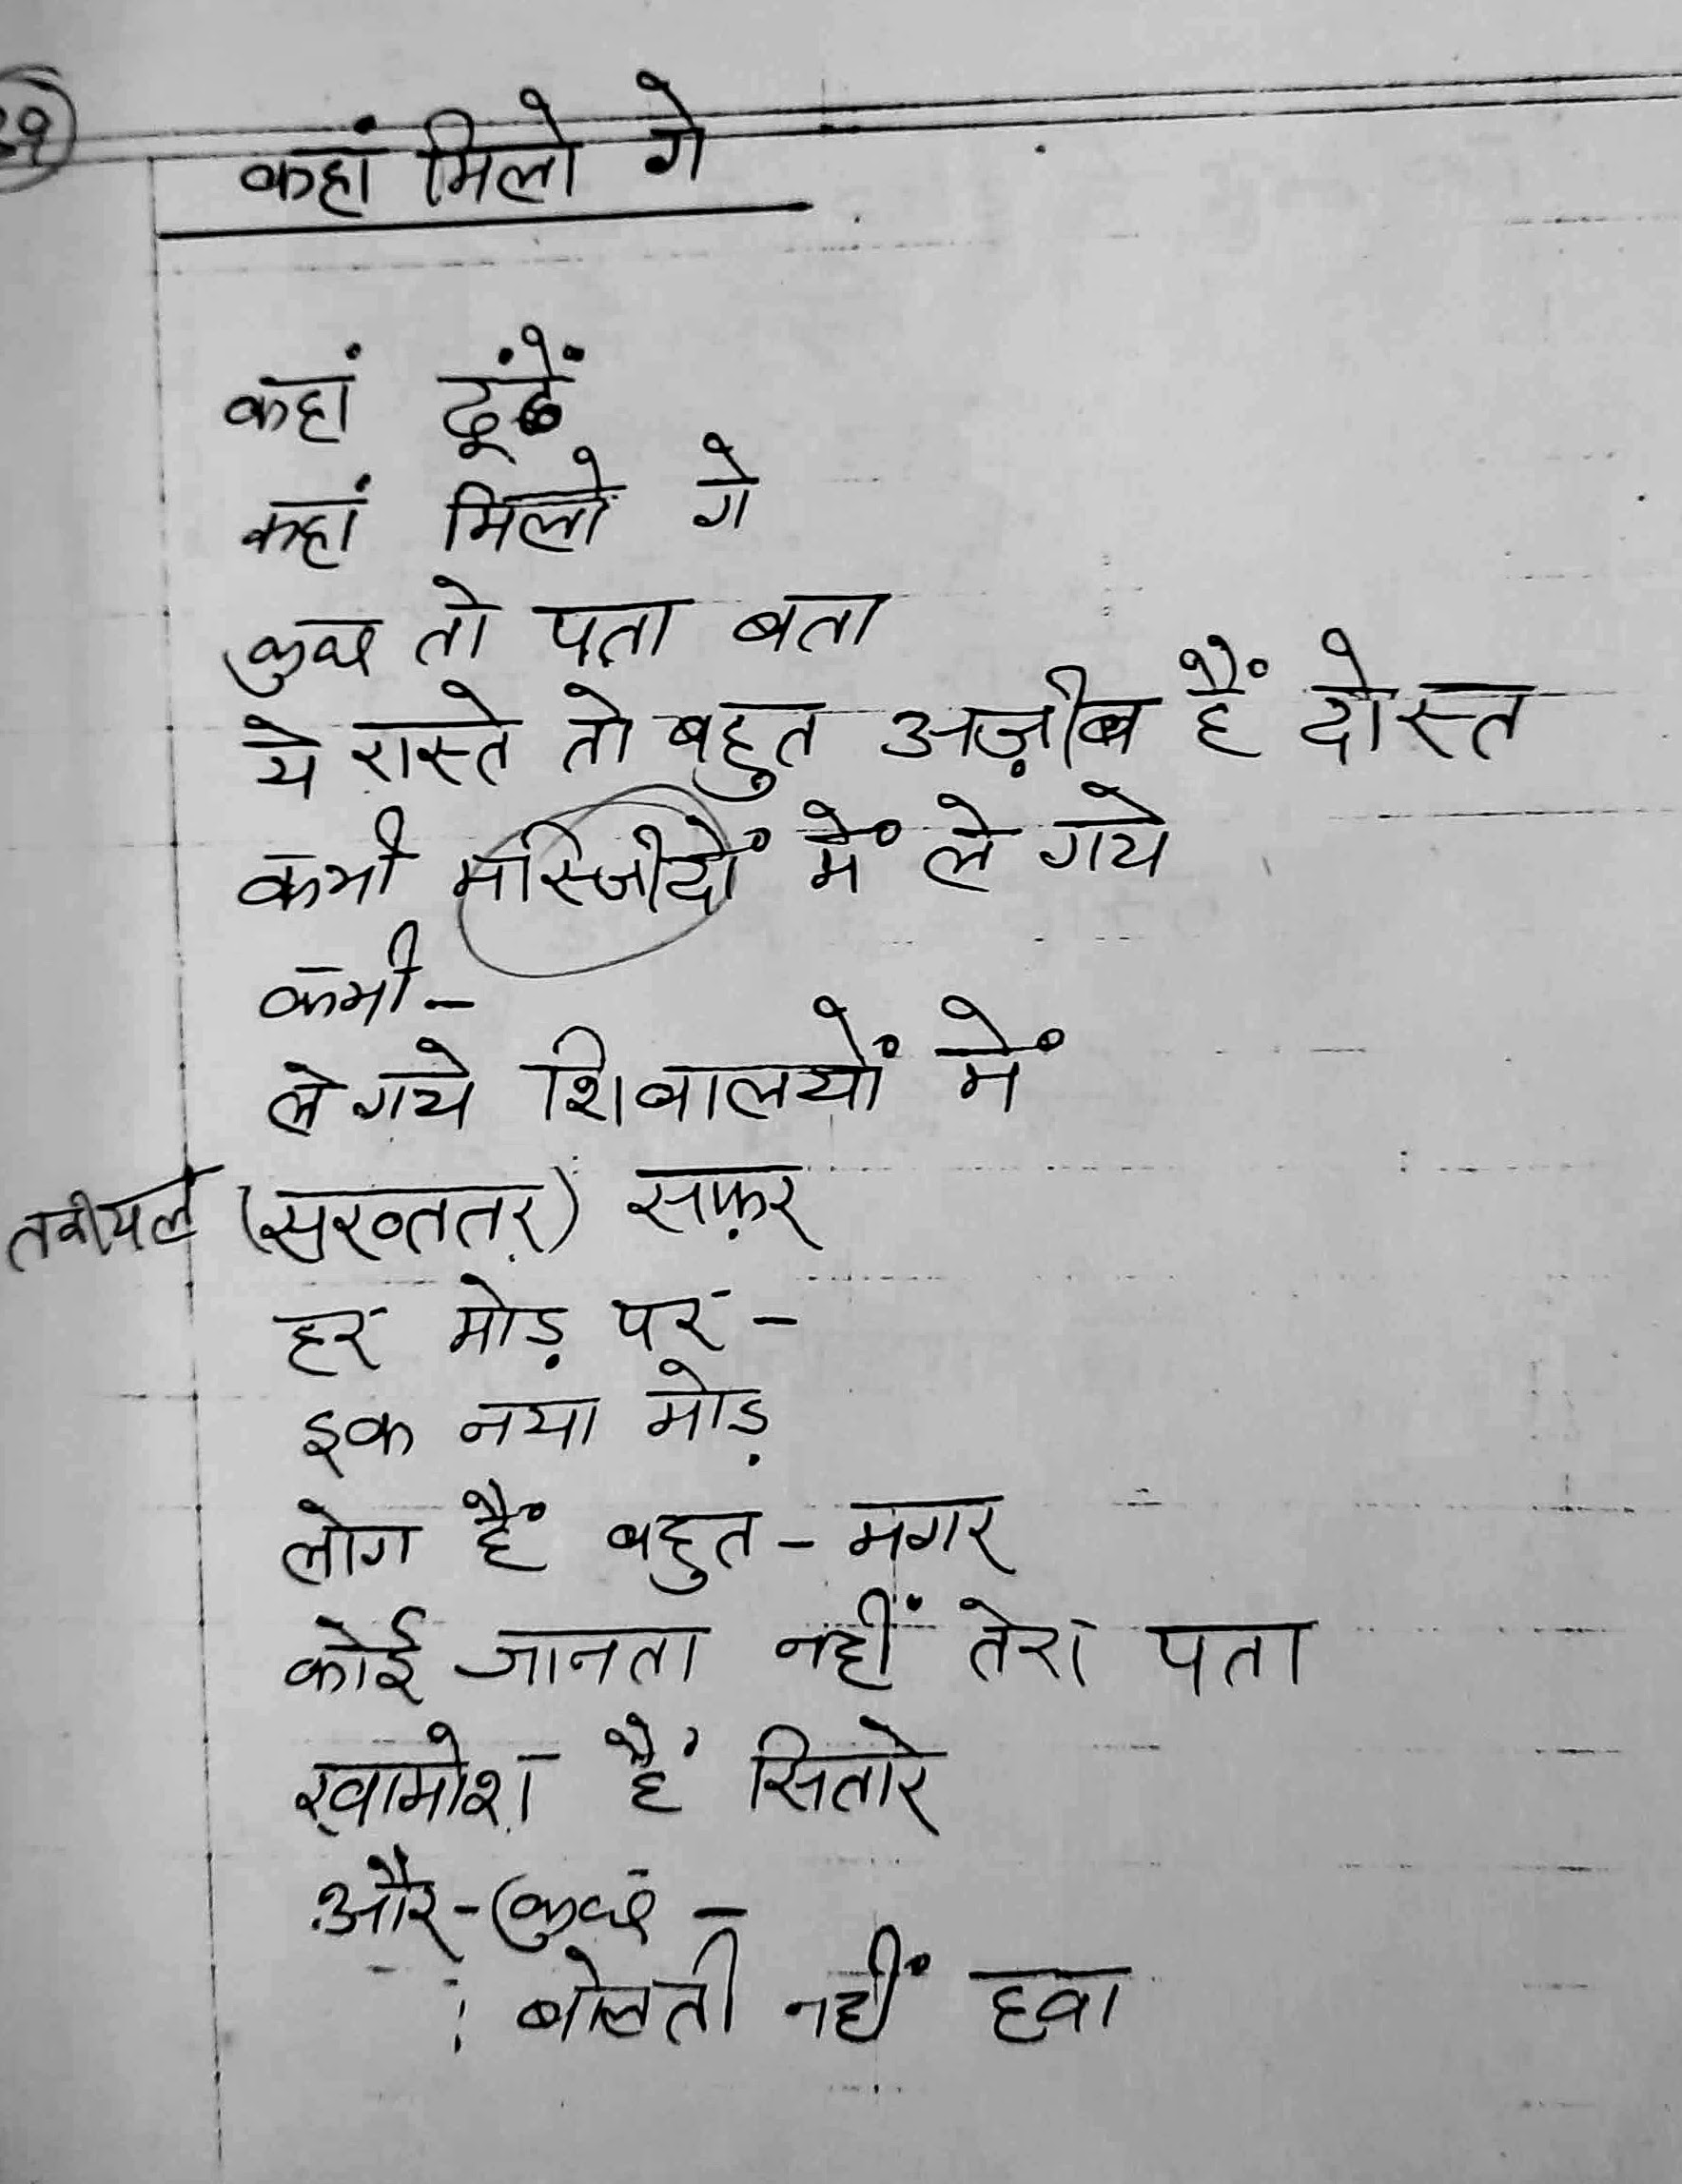 कहां मिलो गे
कहां ढूंढें
कहां मिलो गे
कुछ तो पता बता
ये रास्ते तो बहुत अज़ीब हैं दोस्त
कभी मस्जिदों में ले गये
कभी -
ले गये शिवालयों में
(सख्ततर) सफ़र
हर मोड़ पर -
इक नया मोड़
लोग हैं बहुत - मगर
कोई जानता नहीं तेरा पता
खामोश हैं सितारे
और - कुछ -
बोलती नहीं हवा